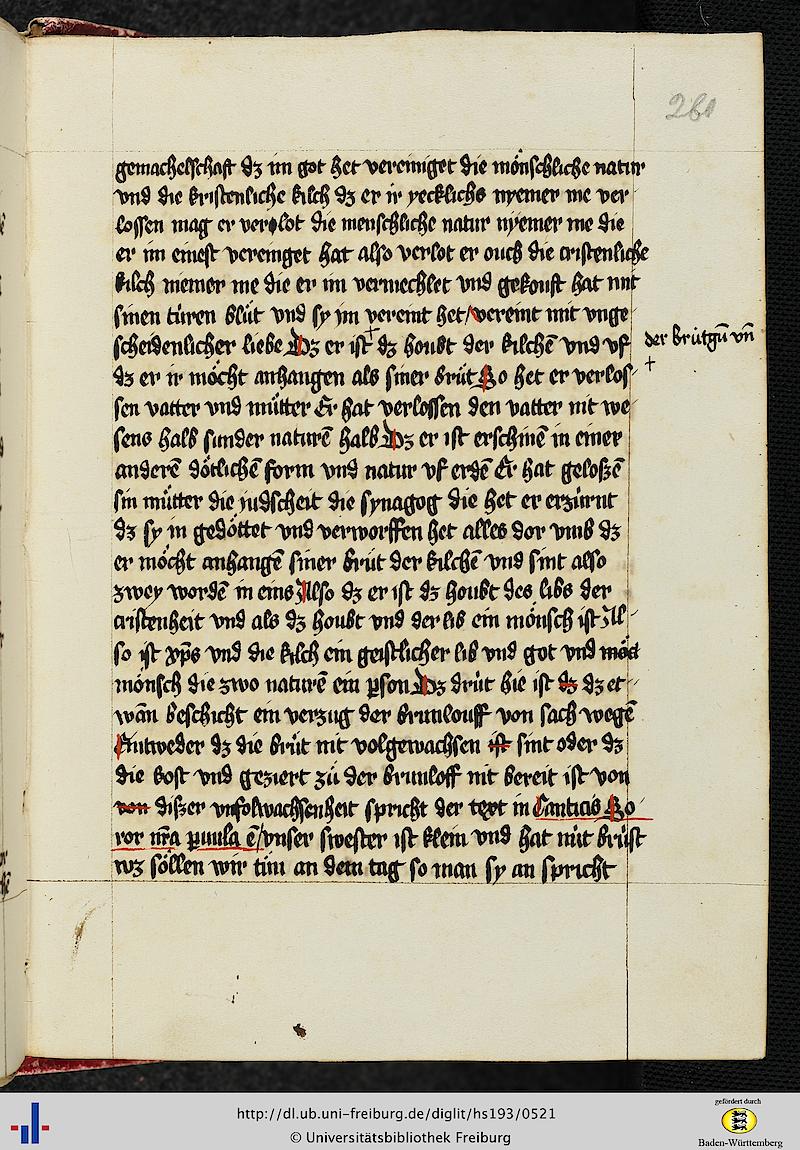 261
gemachelschaft dz im got het vereniget die mönschliche natur
vnd die kristenliche kilch dz er ir yecklichs nyemer me ver
lossen mag er verlot die menschliche natur nyemer me die
er im einest vereinget hat also verlot er ouch die cristenliche
kilch niemer me die er im vermechlet vnd gekouft hat mit
sinen türen blüt vnd sy im vereint het / vereint mit vnge
scheidenlicher liebe Dz er ist + dz houbt der kilchē vnd vf
der brütgū vn̄
+
dz er ir möcht anhangen als siner brüt So het er verlos
sen vatter vnd mütter Er hat verlossen den vatter nit we
sens halb sunder naturē halb Dz er ist erschinē in einer
anderē dötlichē form vnd natur vf erdē Er hat geloßē
sin mütter die judscheit die synagog die het er erzürnt
dz sy in gedöttet vnd verworffen het alles dor vmb dz
er möcht anhangē siner brüt der kilchē vnd sint also
zwey wordē in eins Also dz er ist dz houbt des libs der
cristenheit vnd als dz houbt vnd der lib ein mönsch ist Al
so ist xp̄s vnd die kilch ein geistlicher lib vnd got vnd
mönsch die zwo naturē ein pson Dz drüt hie ist dz dz et
wan̄ beschicht ein verzug der brunlouff von sach wegē
Eintweder dz die brüt nit volgewachsen ist sint oder dz
die kost vnd geziert zü der brunloff nit bereit ist von
von diszer vnfolwachsenheit spricht der text in Canticis So
ror nr̄a puula ē / vnser swester ist klein vnd hat nüt brüst
wz söllen wir tün an dem tag so man sy an spricht
http://dl.ub.uni-freiburg.de/diglit/hs193/0521
© Universitätsbibliothek Freiburg
gefördert durch
Baden-Württemberg